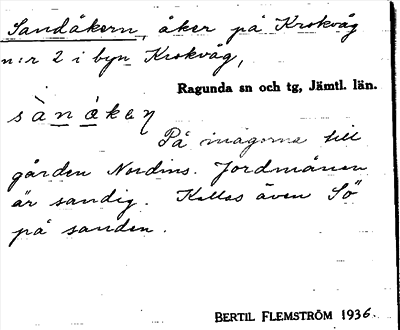 Sandåkern, åker på Krokvåg
n:r 2 i byn Krokvåg,
Ragunda sn och tg, Jämtl. län.
På inägorna till
gården Nordins. Jordmånen
är sandig. Kallas även Sö
på sanden.
BERTIL FLEMSTRÖM 1936.